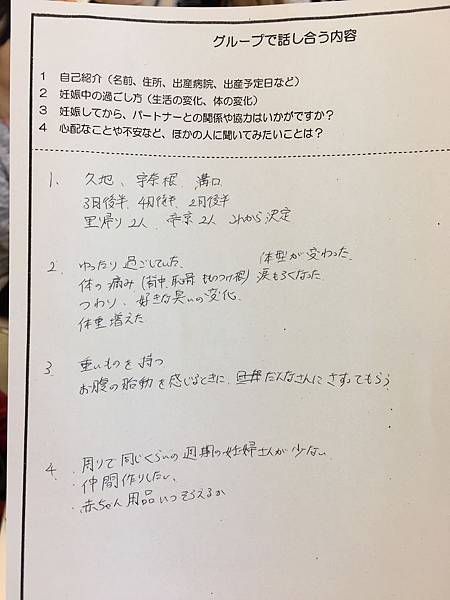 グループで話し合う内容
1 自己紹介（名前、住所、出産病院、出産予定日など）
2 妊娠中の過ごし方（生活の変化、体の変化）
3 妊娠してから、パートナーとの関係や協力はいかがですか？
4 心配なことや不安など、ほかの人に聞いてみたいことは？
1. 久地、宇奈根、溝口
3月後半、4月後半、2月後半
里帰り2人、帝京2人、これから決定
2. ゆったり過ごしていた。 体型が変わった。
体の痛み（背中、恥骨、もものつけ根） 涙もろくなった
つわり、好きな臭いの変化
体重増えた
3. 重いものを持つ
お腹の胎動を感じるときに、だんなさんにさすってもらう
4. ・周りで同じくらいの週期の妊婦さんが少ない
・仲間作りしたい、
・赤ちゃん用品いつそろえるか